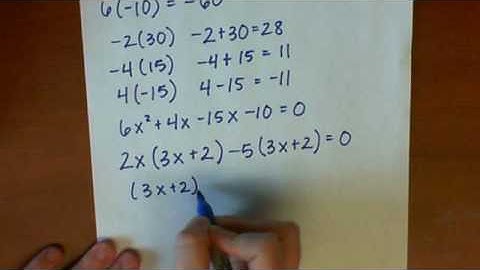 6(-10) = -60
-2(30) -2+30=28
-4(15) -4+15=11
4(-15) 4-15=-11
6x²+4x-15x-10=0
2x(3x+2)-5(3x+2)=0
(3x+2)